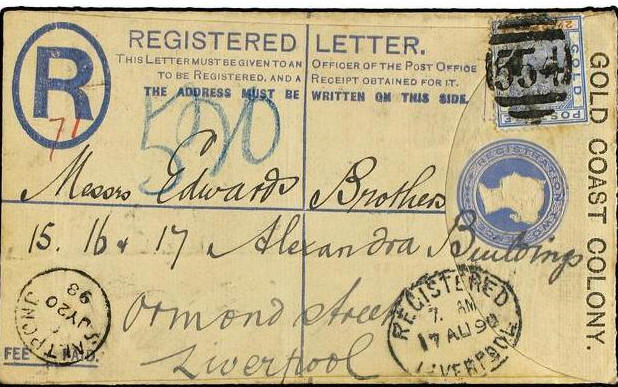 REGISTERED LETTER.
THIS LETTER MUST BE GIVEN TO AN OFFICER OF THE POST OFFICE
TO BE REGISTERED, AND A RECEIPT OBTAINED FOR IT.
THE ADDRESS MUST BE WRITTEN ON THIS SIDE.
R
71
520
554
GOLD
GOLD COAST COLONY.
REGISTRATION
Messrs Edwards Brothers
15. 16 & 17 Alexandra Buildings
Ormond Street
Liverpool
SALTPOND
JY 20
93
REGISTERED
7. AM
17 AU 93
LIVERPOOL
FEE PAID.